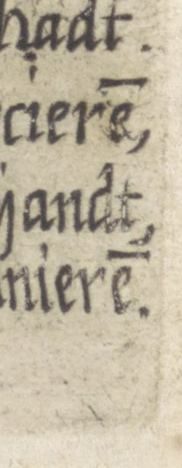 hadt.
cierē,
jandt,
nierē.